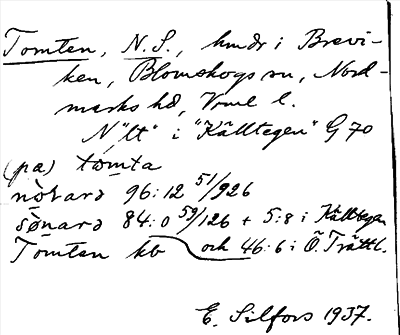 Tomten, N. S., hmdr i Brevi-
ken, Blomskogs sn, Nord-
marks hd, Vrml l.
N "lt" i "Källtegen" G 70
(pa) tòmta
nòꝛard 96:12 51/926
sønard 84:0 59/126 + 5:8 i Källtegen
Tomten kb och 46:6 i Ö. Trättl.
E. Silfors 1937.